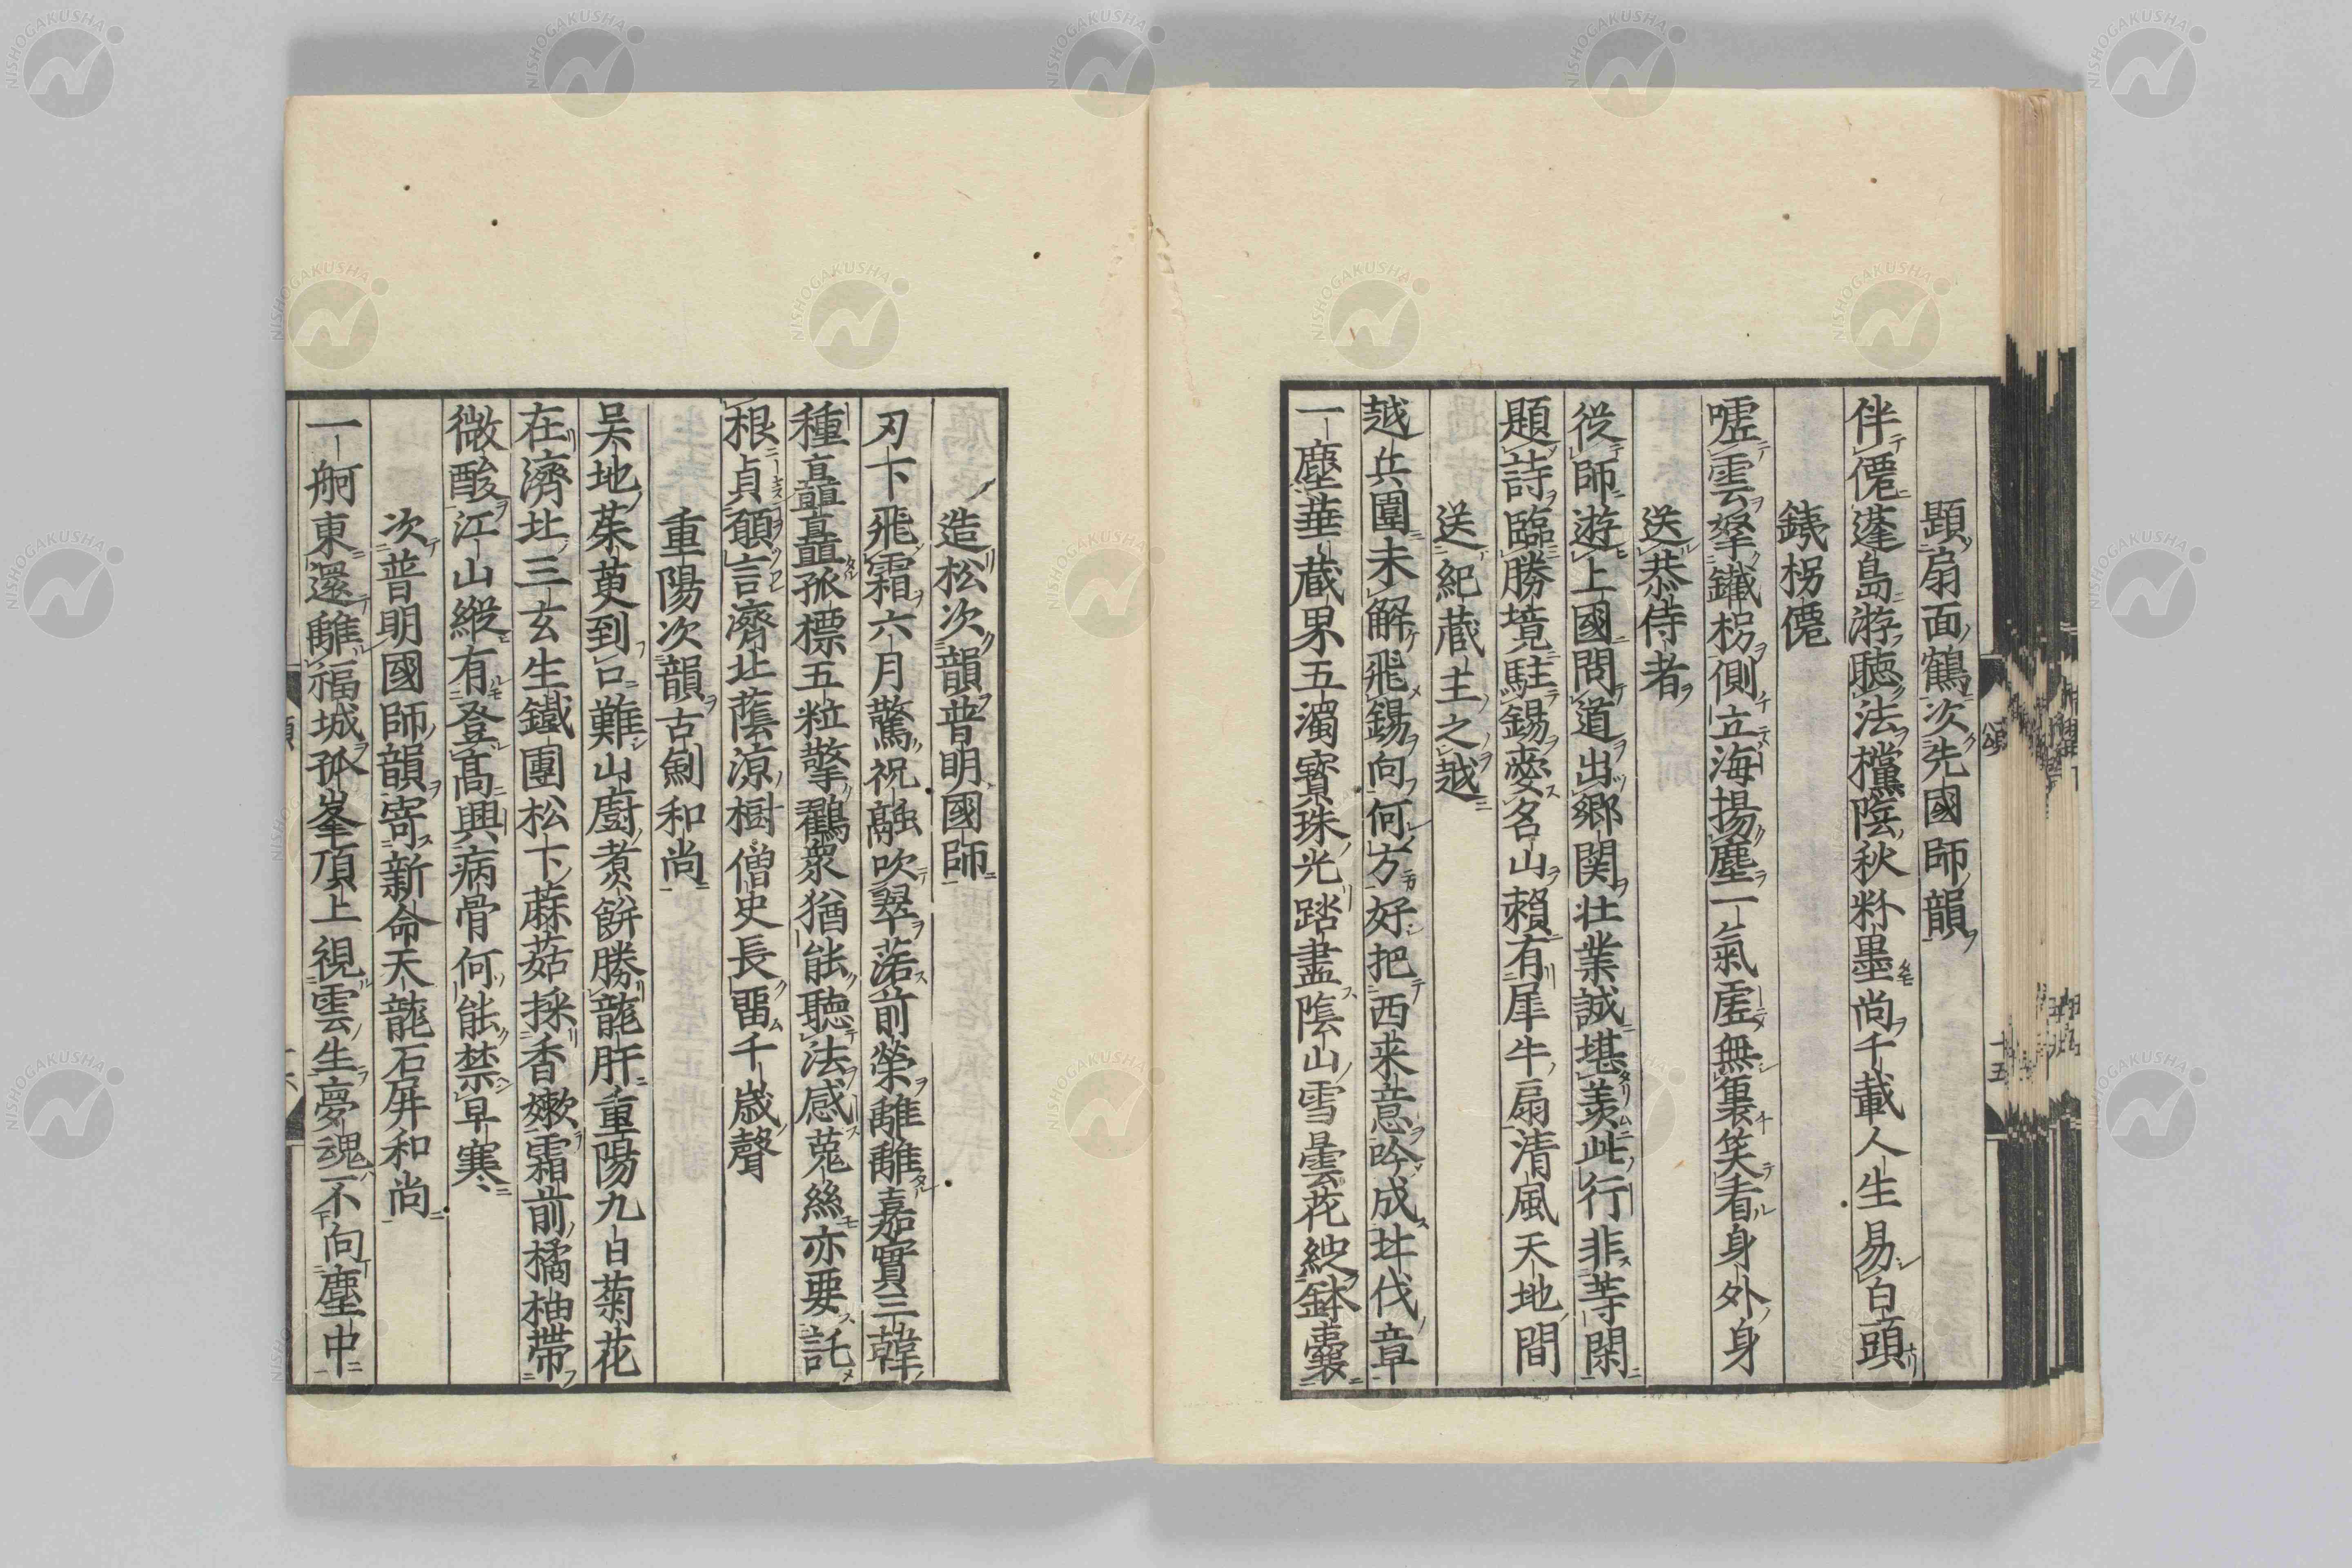 題扇面鶴次先國師韻
伴僊蓬島游聽法檔陰秋粉墨尚千載人生易白頭
銕柺僊
噓雲拏鐵柺側立海揚塵一氣虛無裏笑看身外身
送恭侍者
從師遊上國問道出鄉関壮業誠堪羨此行非等閑
題詩臨勝境駐錫愛名山賴有犀牛扇清風天地間
送紀蔵主之越
越兵圍未解飛錫向何方好把西来意吟成北伐章
一塵華蔵界五濁寶珠光踏盡陰山雪曇花綻鉢囊
頌
十五
造松次韻普明國師
刃下飛霜六月驚祝融吹翠落前榮離離嘉實三韓
種矗矗孤標五粒擎鸛衆猶能聽法感莵絲亦要託
根貞願言濟北蔭涼樹僧史長畱千歳聲
重陽次韻古劍和尚
吴地茱萸到口難山廚煮餅勝龍肝重陽九日菊花
在濟北三玄生鐵團松下蔴菇採香嫩霜前橘柚帶
微酸江山縱有登高興病骨何能禁早寒
次普明國師韻寄新命天龍石屏和尚
一舸東還離福城孤峯頂上視雲生夢魂不向塵中